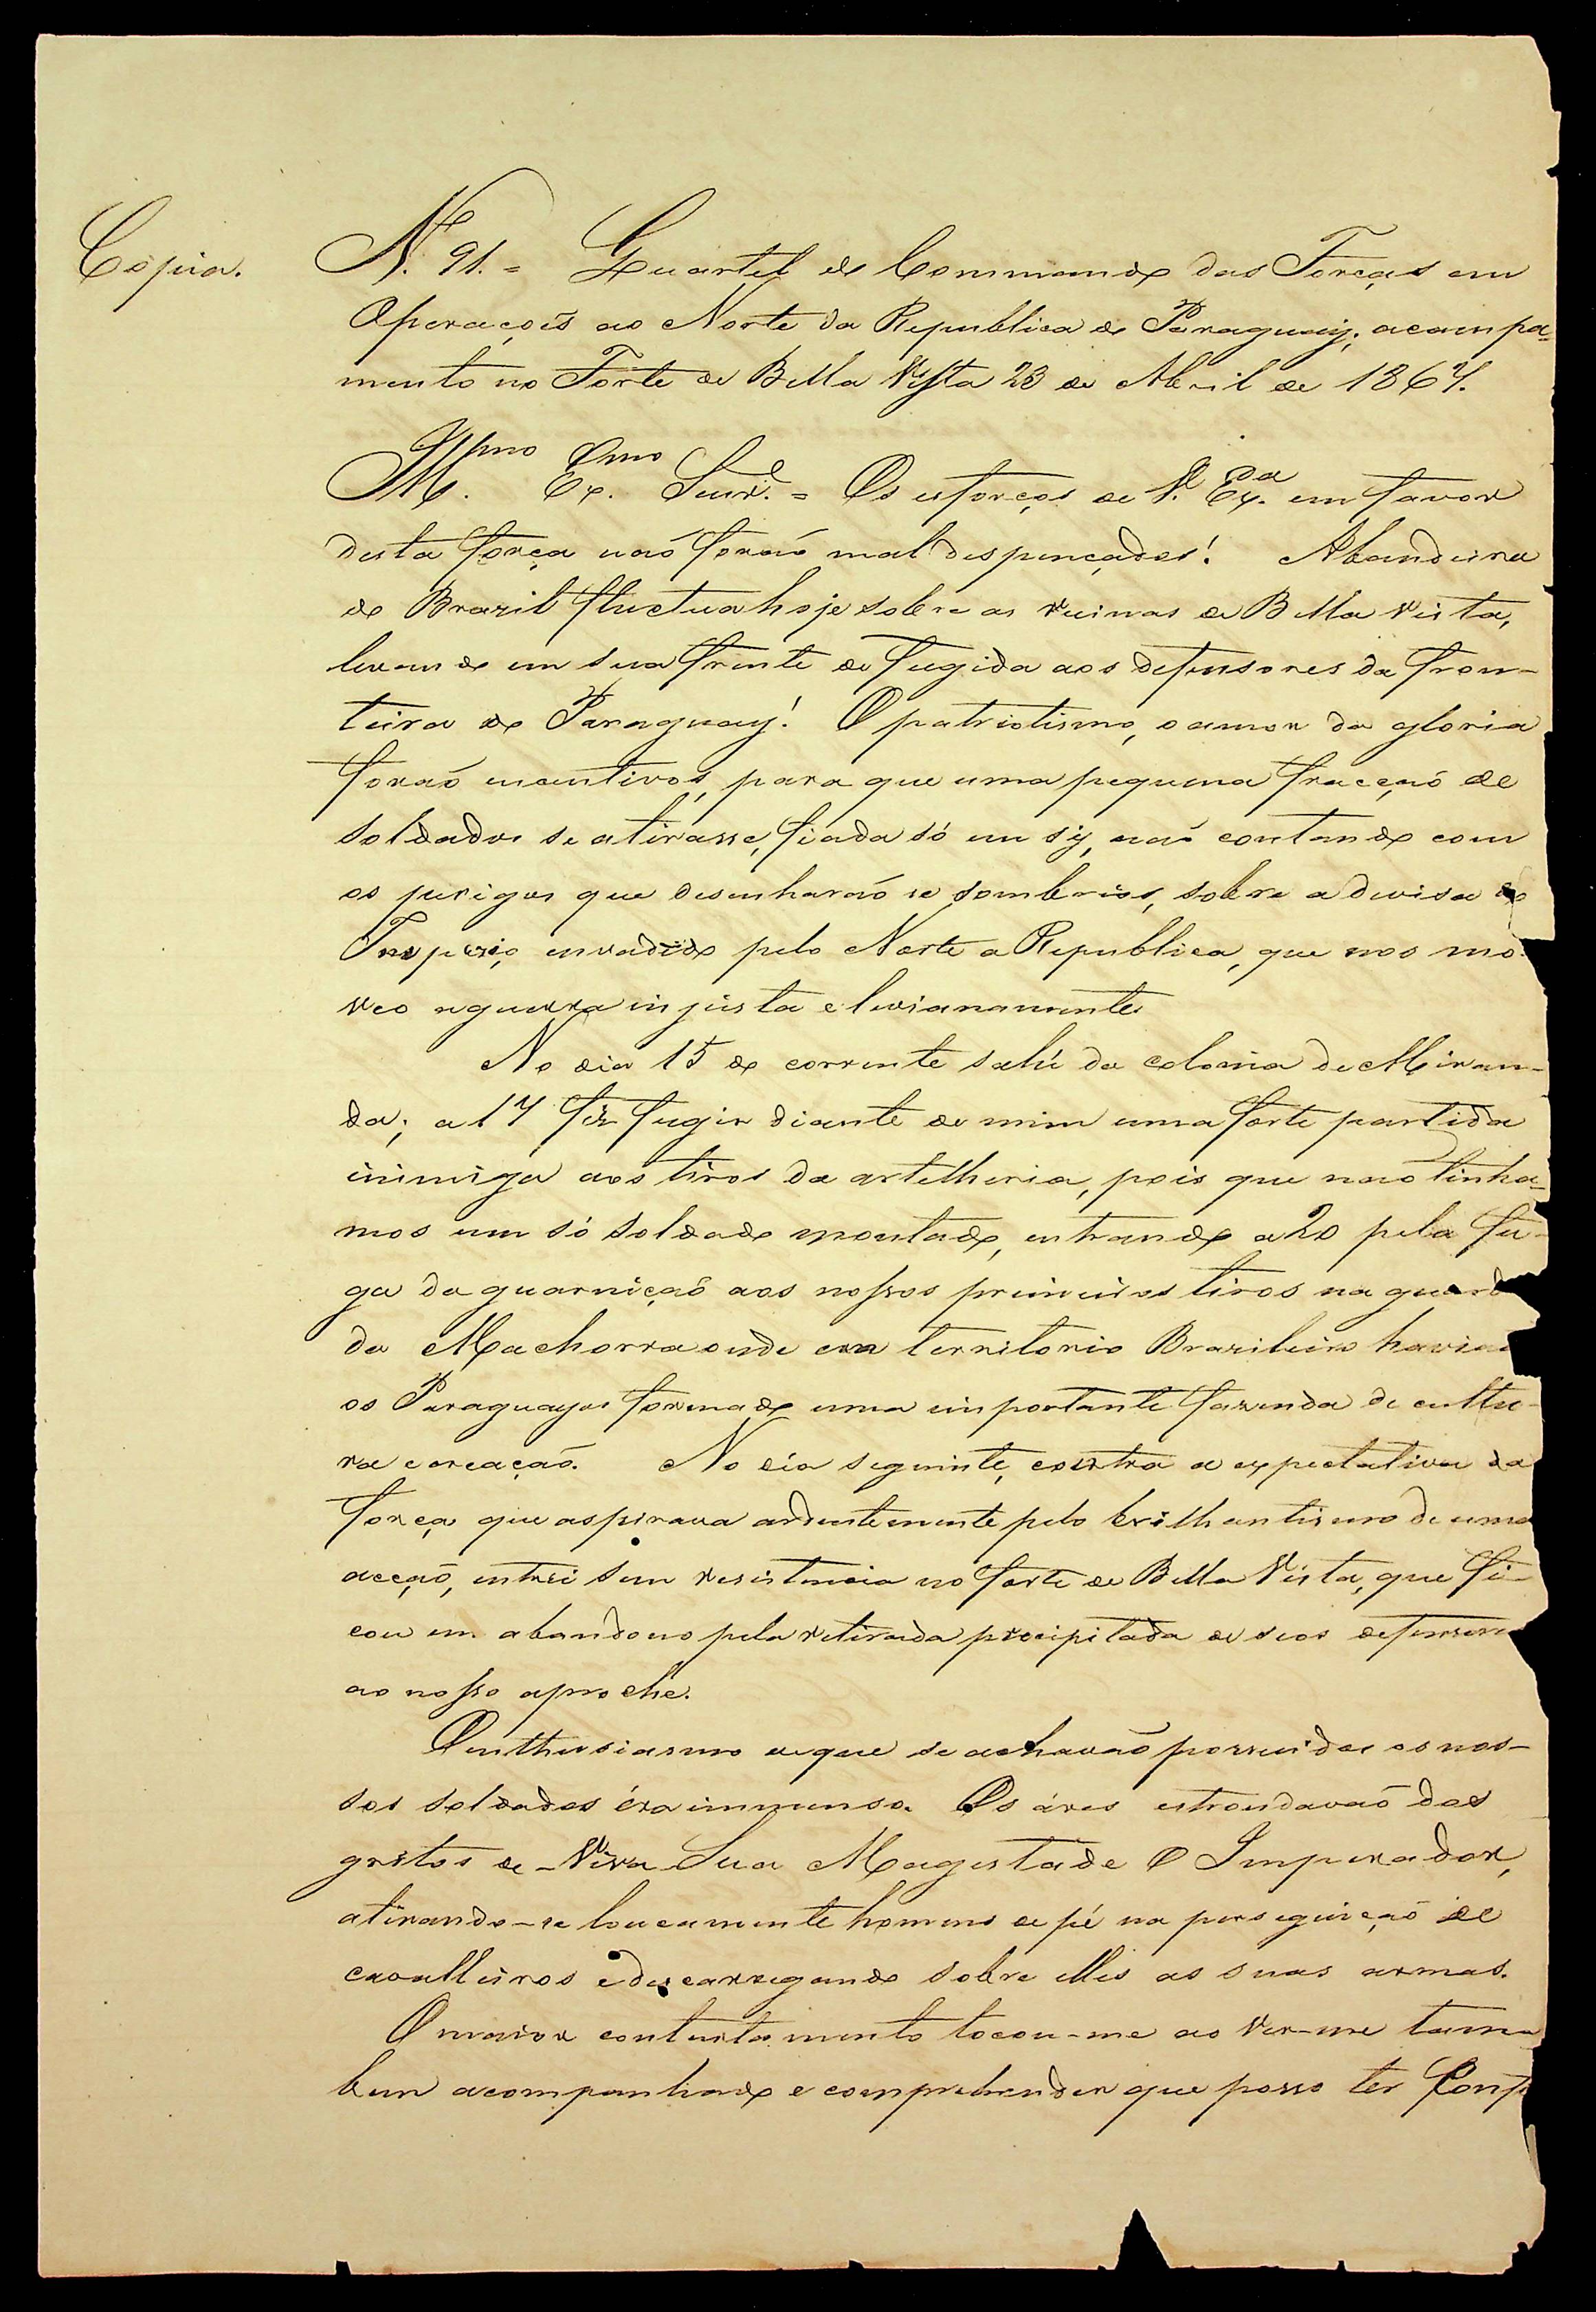 Copia.
N. 91. = Quartel do Commando das Forças em
Operações ao Norte da Republica do Paraguay; acampa-
mento no Forte de Bella Vista 23 de Abril de 1867.
Illmo Exmo Senr. = Os esforços de V. Exa. em favor
desta força naõ foraõ mal despençados! A bandeira
do Brazil fluctua hoje sobre as ruinas de Bella Vista,
levando em sua frente de fugida aos defensores da fron-
teira do Paraguay! O patriotismo, o amor da gloria
foraõ incentivos, para que uma pequena fracçaõ de
soldados se atirasse, fiada só em sy, naõ contando com
os perigos que desenharaõ se sombrios, sobre a devisa do
Imperio, envadido pelo Norte a Republica, que nos mo-
veo a guerra injusta e levianamente
No dia 15 do corrente sahí da colonia de Miran-
da; a 17 fiz fugir diante de mim uma forte partida
inimiga aos tiros da artelheria, pois que naõ tinha-
mos um só soldado montado, entrando a 20 pela fu-
ga da guarniçaõ aos nossos primeiros tiros na guard
da Machorra onde em territorio Brazileiro havia
os Paraguayos formado uma importante fazenda de cultu-
ra e creaçaõ. No dia seguinte, contra a expectativa da
força que aspirava ardentemente pelo brilhantismo de uma
acçaõ, entrei sem resistencia no forte de Bella Vista, que fi-
cou em abandono pela retirada precipitada de seos defensore
ao nosso aproche.
O enthusiasmo de que se achavaõ possuidos os nos-
sos soldados éra immenso. Os áres estrondavaõ dos
gritos de - Viva Sua Magestade O Imperador,
atirando-se loucamente homens de pé na perseguiçaõ de
cavalleiros e descarregando sobre elles as suas armas.
O maior contentamento tocou-me ao ver-me tam
bem acompanhado e comprehender que posso ter